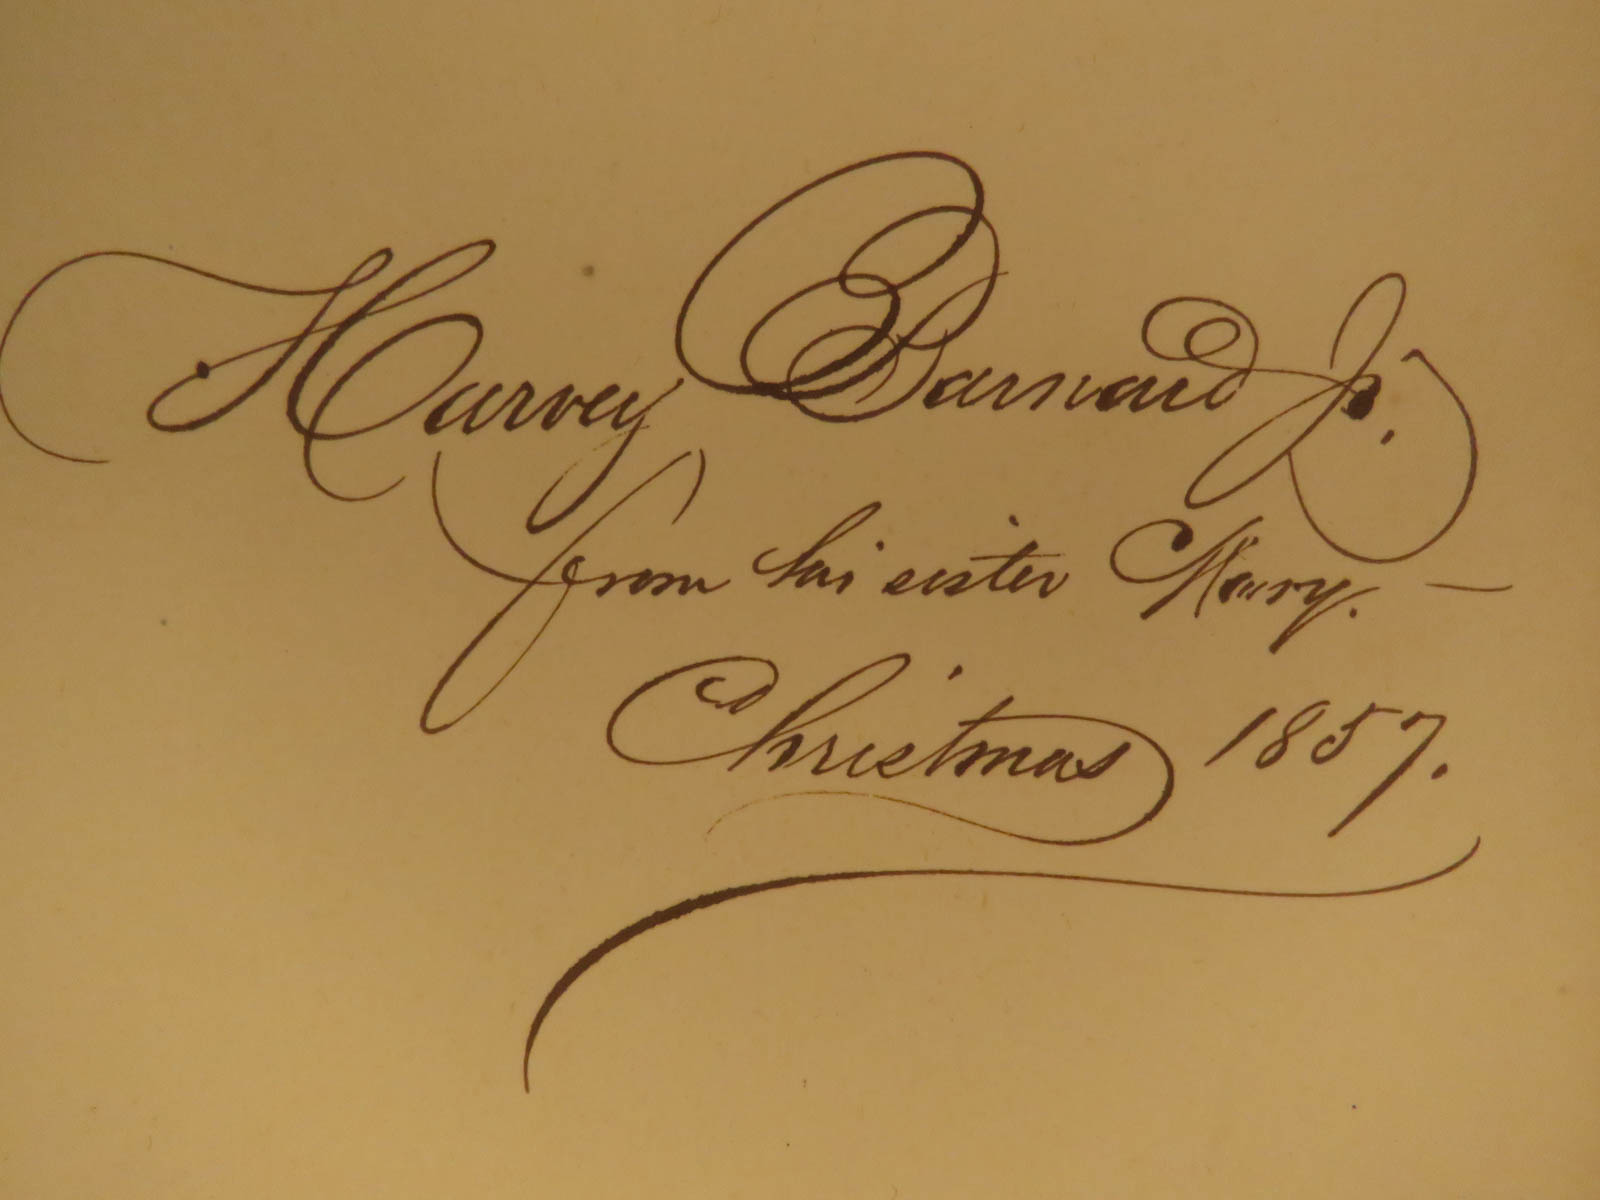 Harvey Barnard Jr.
from his sister Mary. —
Christmas 1857.